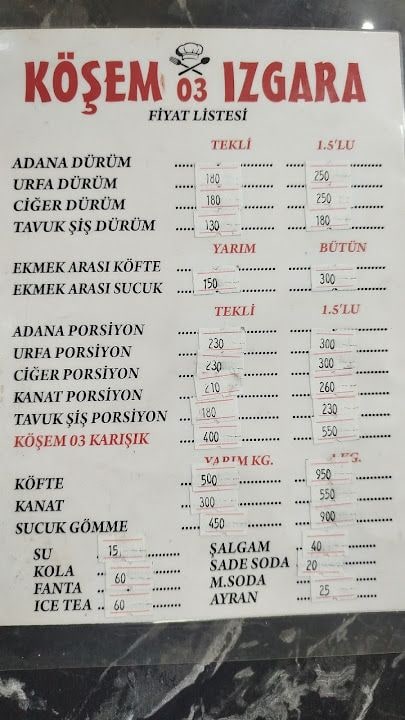 KÖŞEM 03 IZGARA
FİYAT LİSTESİ
TEKLİ 1.5'LU
ADANA DÜRÜM
URFA DÜRÜM 180 250
CİĞER DÜRÜM 180 250
TAVUK ŞİŞ DÜRÜM 130 180
YARIM BÜTÜN
EKMEK ARASI KÖFTE
EKMEK ARASI SUCUK 150 300
TEKLİ 1.5'LU
ADANA PORSİYON
URFA PORSİYON 230 300
CİĞER PORSİYON 230 300
KANAT PORSİYON 210 260
TAVUK ŞİŞ PORSİYON 180 230
KÖŞEM 03 KARIŞIK 400 550
YARIM KG. KG.
KÖFTE 500 950
KANAT 300 550
SUCUK GÖMME 450 900
SU 15 ŞALGAM 40
KOLA SADE SODA 20
FANTA 60 M.SODA
ICE TEA 60 AYRAN 25